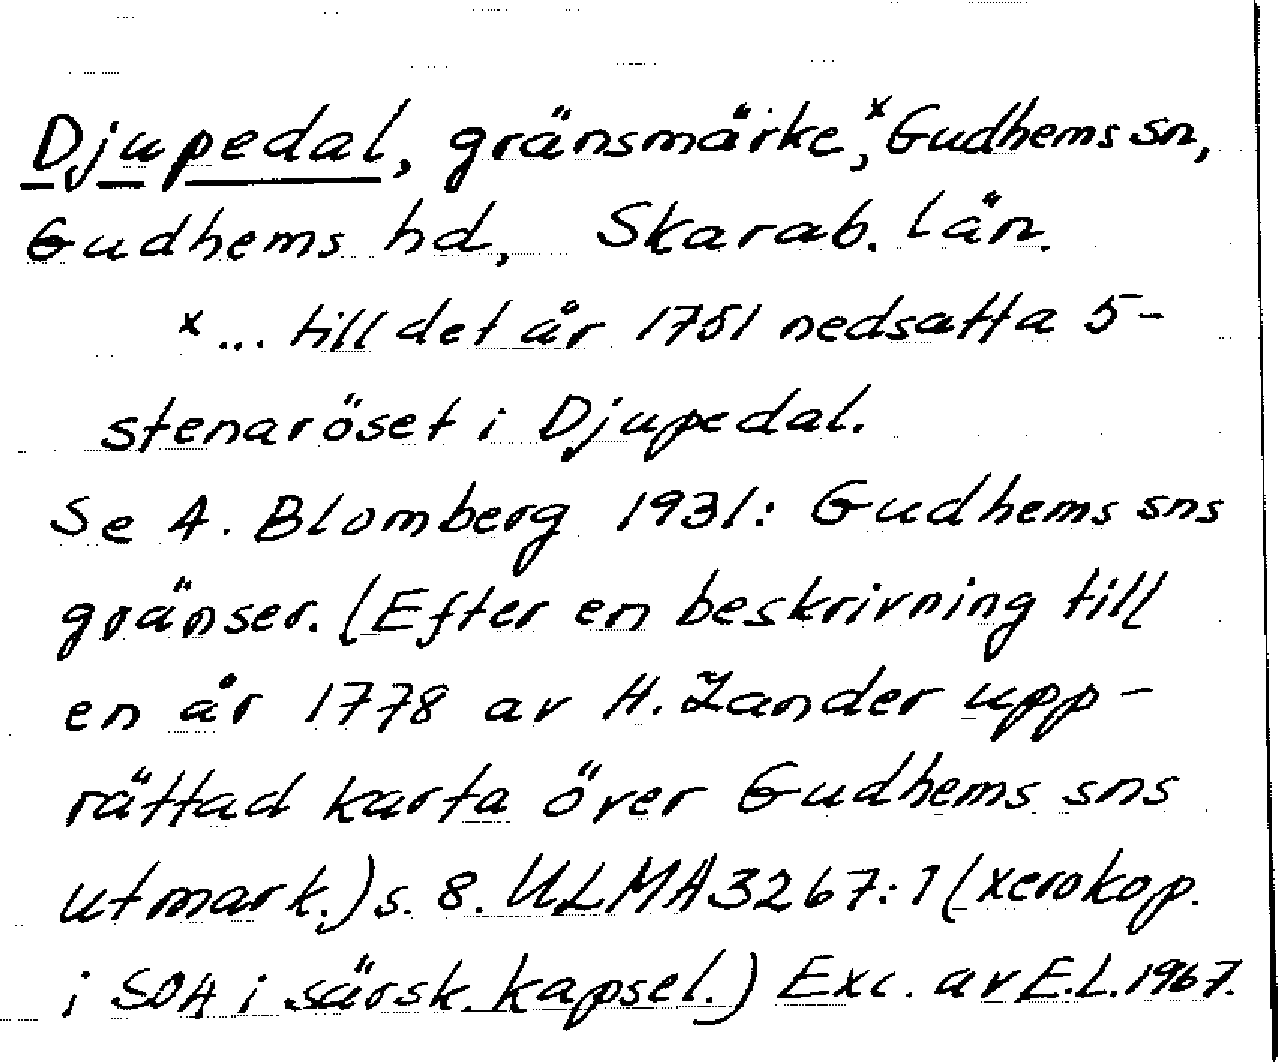 Djupedal, gränsmärke,ˣ Gudhems sn,
Gudhems hd, Skarab. län.
x... till det år 1751 nedsatta 5-
stenaröset i Djupedal.
Se A. Blomberg 1931: Gudhems sns
gränser. (Efter en beskrivning till
en år 1778 av H. Zander upp-
rättad karta över Gudhems sns
utmark.) s. 8. ULMA 3267:1 (xerokop.
i SOA i särsk. kapsel.) Exc. av E.L. 1967.